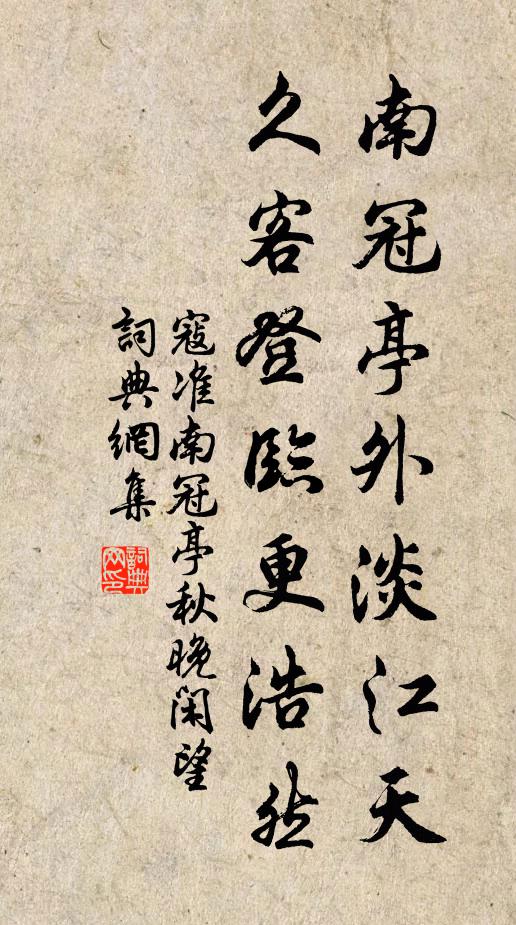 南冠亭外淡江天
久客登臨更浩然
寇准南冠亭秋晚闲望
詞典網集
詞典网印